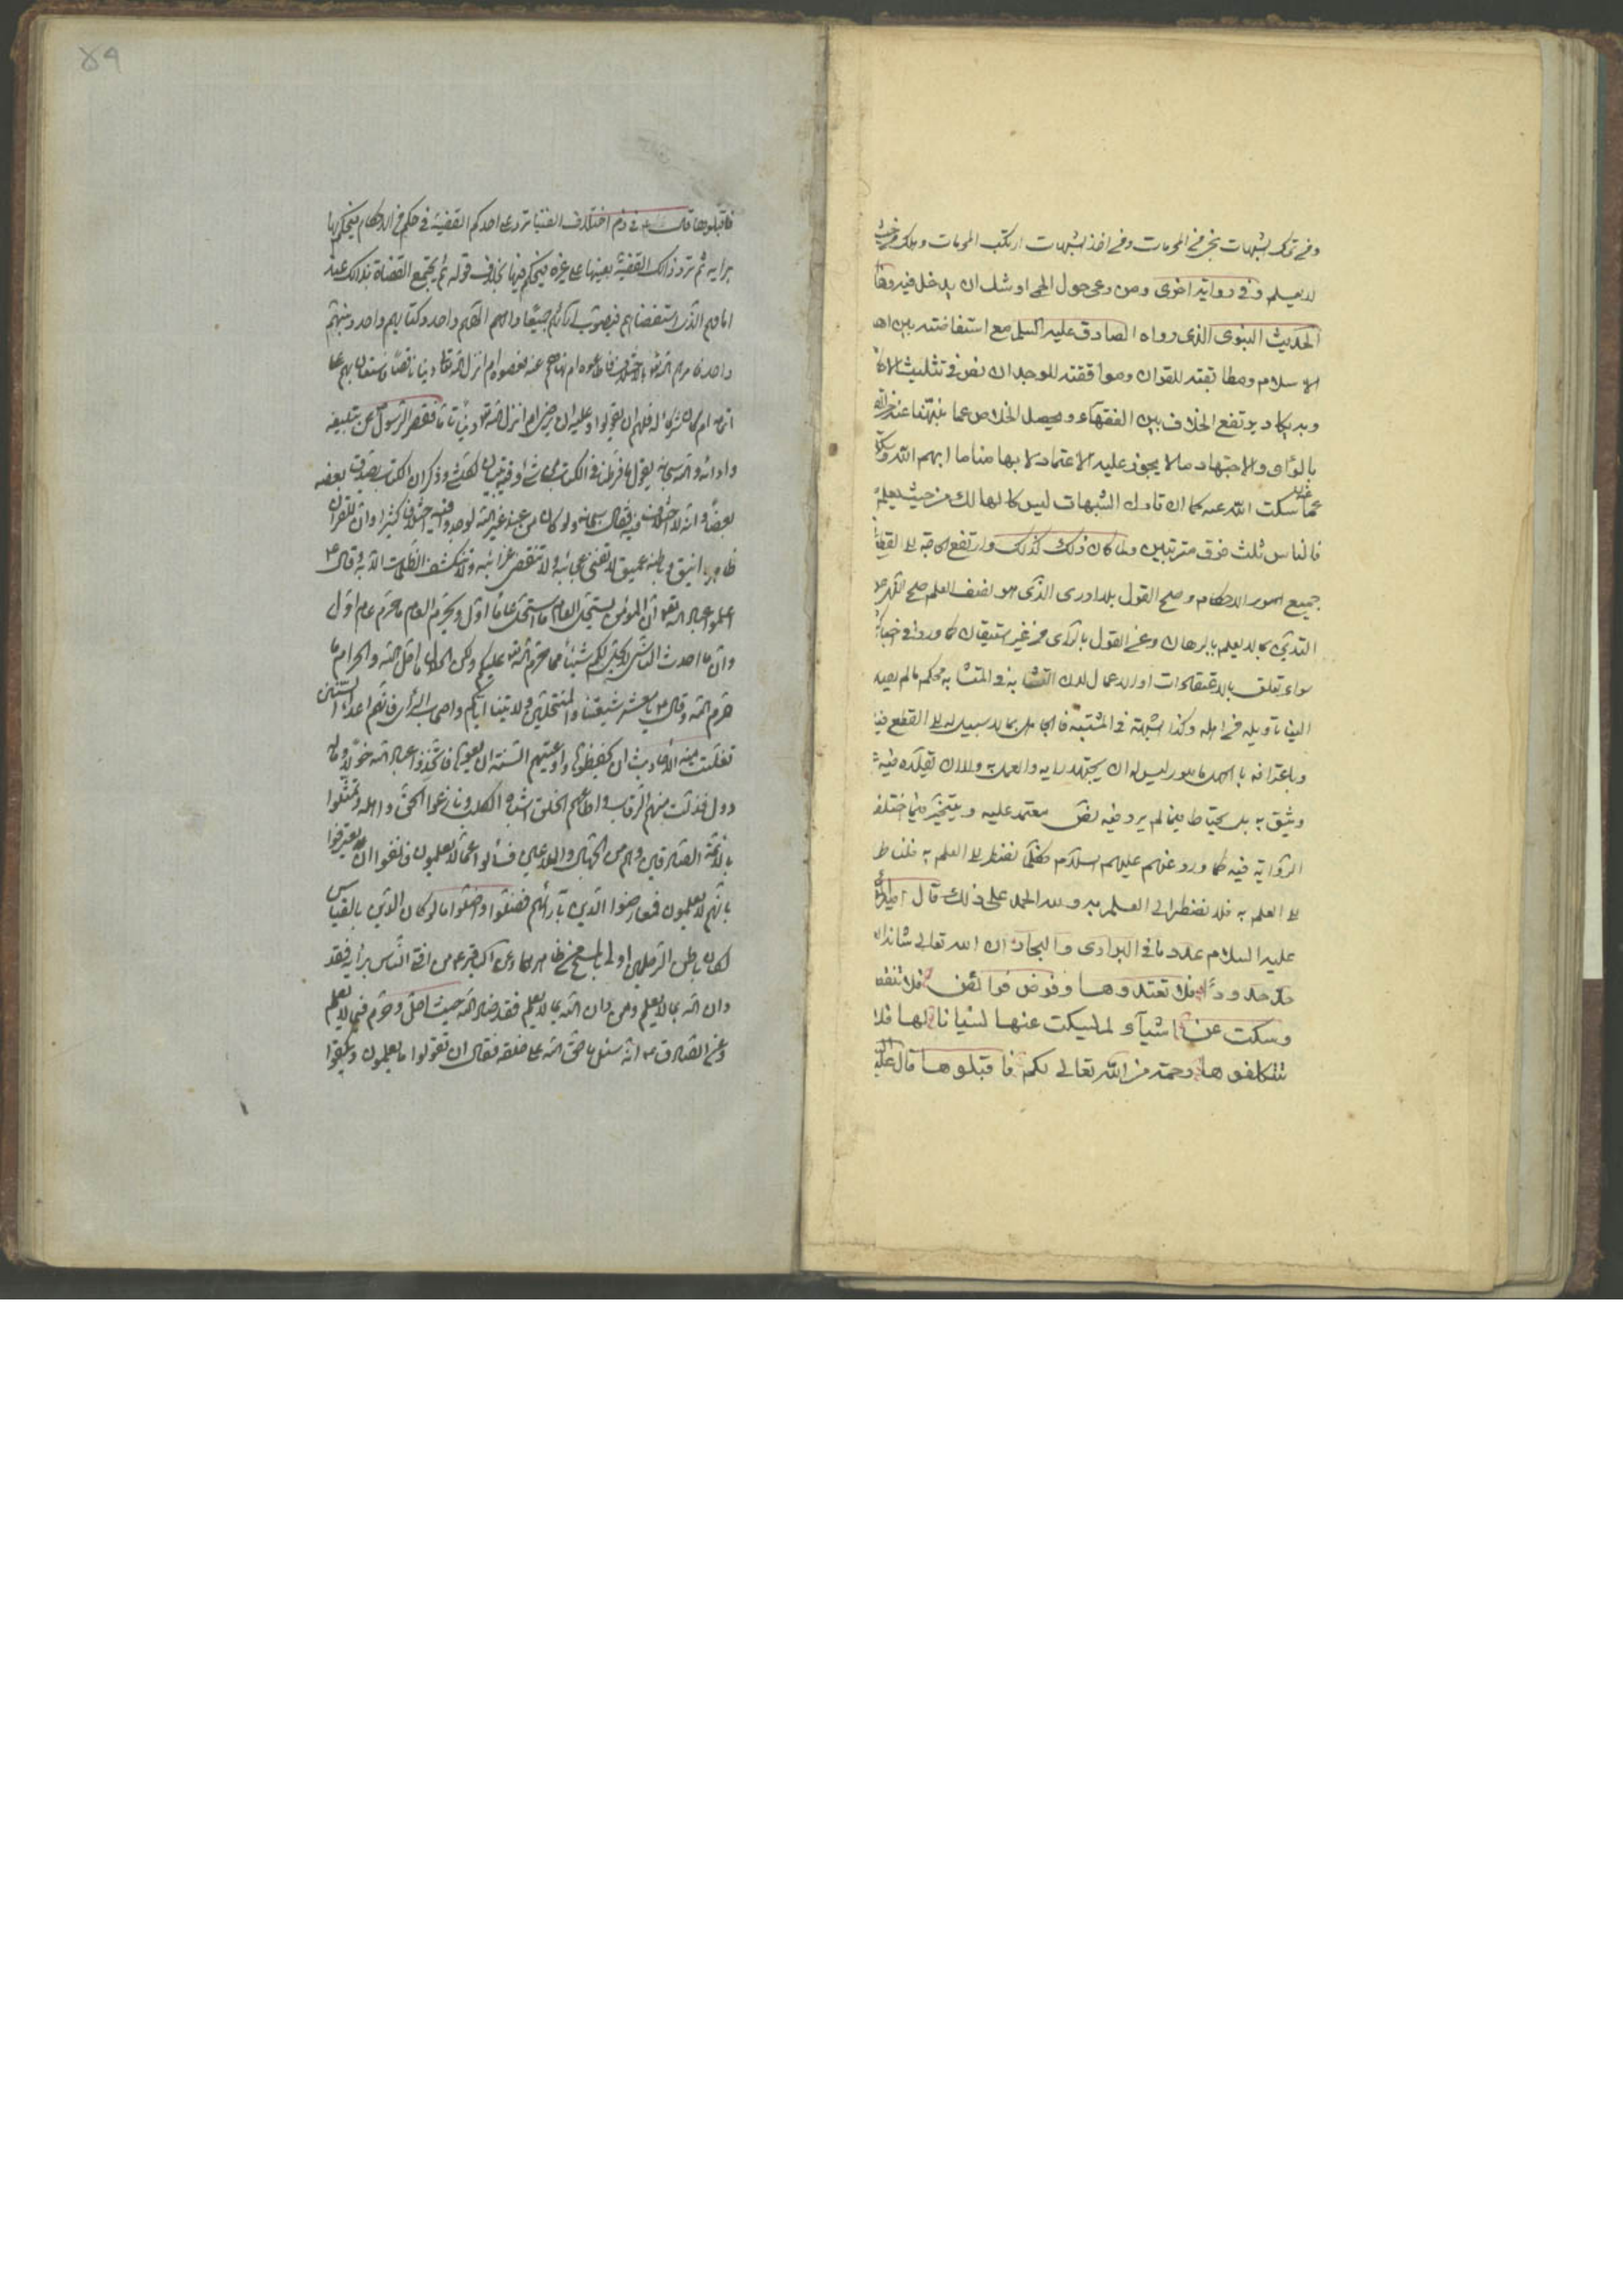 ومن ترك الشبهات نجى من المحرمات ومن اخذ الشبهات ارتكب المحرمات وهلك من حيث
لا يعلم وفى رواية اخرى ومن رعى حول الحمى اوشك ان يدخل فيه وهذا
الحديث النبوى الذى رواه الصادق عليه السلم مع استفاضته بين اهل
الاسلام ومطابقته للقران وموافقته للوجدان نص فى تثليث الاحكام
وبه يكاد يرتفع الخلاف بين الفقهاء ويحصل الخلاص عما نبهتنا عنه
بالرأى والاجتهاد مالا يجوز عليه الاعتماد لا بها منا ما ابهم الله وسكتنا
عما سكت الله عنه كما ان تارك الشبهات ليس كالهالك من حيث لا يعلم
فالناس ثلث فرق مترتبين ولما كان ذلك كذلك وارتفع الحاجة الى القطع
جميع امور الاحكام وصح القول بلا ادرى الذى هو نصف العلم صح النهى
التدين بما لا يعلم بالبرهان وعن القول بالرأى من غير استيقان كما ورد
سواء تعلق بالاعتقادات او الاعمال لان التشابه فى المتشابه محكم ما لم يصل
الينا تاويله من اهله وكذا الشبهة فى المشتبه فالجاهل بما لا سبيل له الى القطع فيه
وباعترافه بالجهل مامور ليس له ان يجتهد رايه والعمل به ولا ان تقليده فيه
وثيق به بل يحتاط فيما لم يرد فيه نص معتمد عليه ويتخير فيما اختلف
الرواية فيه كما ورد عنهم عليهم السلام فكلما نضطر الى العلم به فلنا طريق
الى العلم به فلا نضطر الى العلم به ولله الحمد على ذلك قال امير المؤمنين
عليه السلام عدد ما فى البوادى والبحار ان الله تعالى شانه
حد حدودا فلا تعتدوها وفرض فرائض فلا تنقصوها
وسكت عن اشياء ولم يسكت عنها نسيانا لها فلا
تتكلفوها رحمة من الله تعالى لكم فاقبلوها قال عليه
۵۹
فاقبلوها قال فى ذم اختلاف الفتيا ترد على احدكم القضية فى حكم من الاحكام فيحكم فيها
برايه ثم ترد تلك القضية بعينها على غيره فيحكم فيها بخلاف قوله ثم يجتمع القضاة بذلك عند
امامهم الذى استقضاهم فيصوب آرائهم جميعا والههم واحد وكتابهم واحد ونبيهم
واحد فامرهم الله بالاختلاف فاطاعوه ام نهاهم عنه فعصوه ام انزل الله دينا ناقصا فاستعان بهم على
اتمامه ام كانوا شركاء له فلهم ان يقولوا وعليه ان يرضى ام انزل الله دينا تاما فقصر الرسول عن تبليغه
وادائه والله سبحانه يقول ما فرطنا فى الكتاب من شئ وفيه تبيان كل شئ وذكر ان الكتاب يصدق بعضه
بعضا وانه لا اختلاف فيه فقال سبحانه ولو كان من عند غير الله لوجدوا فيه اختلافا كثيرا وان للقران
ظاهره انيق وباطنه عميق لا تفنى عجائبه ولا تنقضى غرائبه ولا تكشف الظلمات الا به وقال ع
اعلموا عباد الله ان المؤمن يستحل العام ما استحل عاما اول ويحرم العام ما حرم عام اول
وان ما احدث الناس لا يحل لكم شيئا مما حرم الله عليكم ولكن الحلال ما احل الله والحرام ما
حرم الله وقال ع يا معشر شيعتنا والمنتحلين ولايتنا اياكم واصحاب الرأى فانهم اعداء السنن
تفلتت منهم الاحاديث ان يحفظوها واعيتهم السنة ان يعوها فاتخذوا عباد الله خولا وماله
دولا فذلت منهم الرقاب واطاعهم الخلق اشباه الكلاب ونازعوا الحق واهله وتمثلوا
بالائمة الصادقين وهم من الجهال والملاعين فسألوا عما لا يعلمون فانفوا ان يعترفوا
بانهم لا يعلمون فعارضوا الدين بآرائهم فضلوا واضلوا اما لو كان الدين بالقياس
لكان باطن الرجلين اولى بالمسح من ظاهرهما وعن الباقر ع من افتى الناس برايه فقد
دان الله بما لا يعلم ومن دان الله بما لا يعلم فقد ضاد الله حيث احل وحرم فيما لا يعلم
وعن الصادق ع انه سئل ما حق الله على خلقه فقال ان تقولوا ما يعلمون ويكفوا